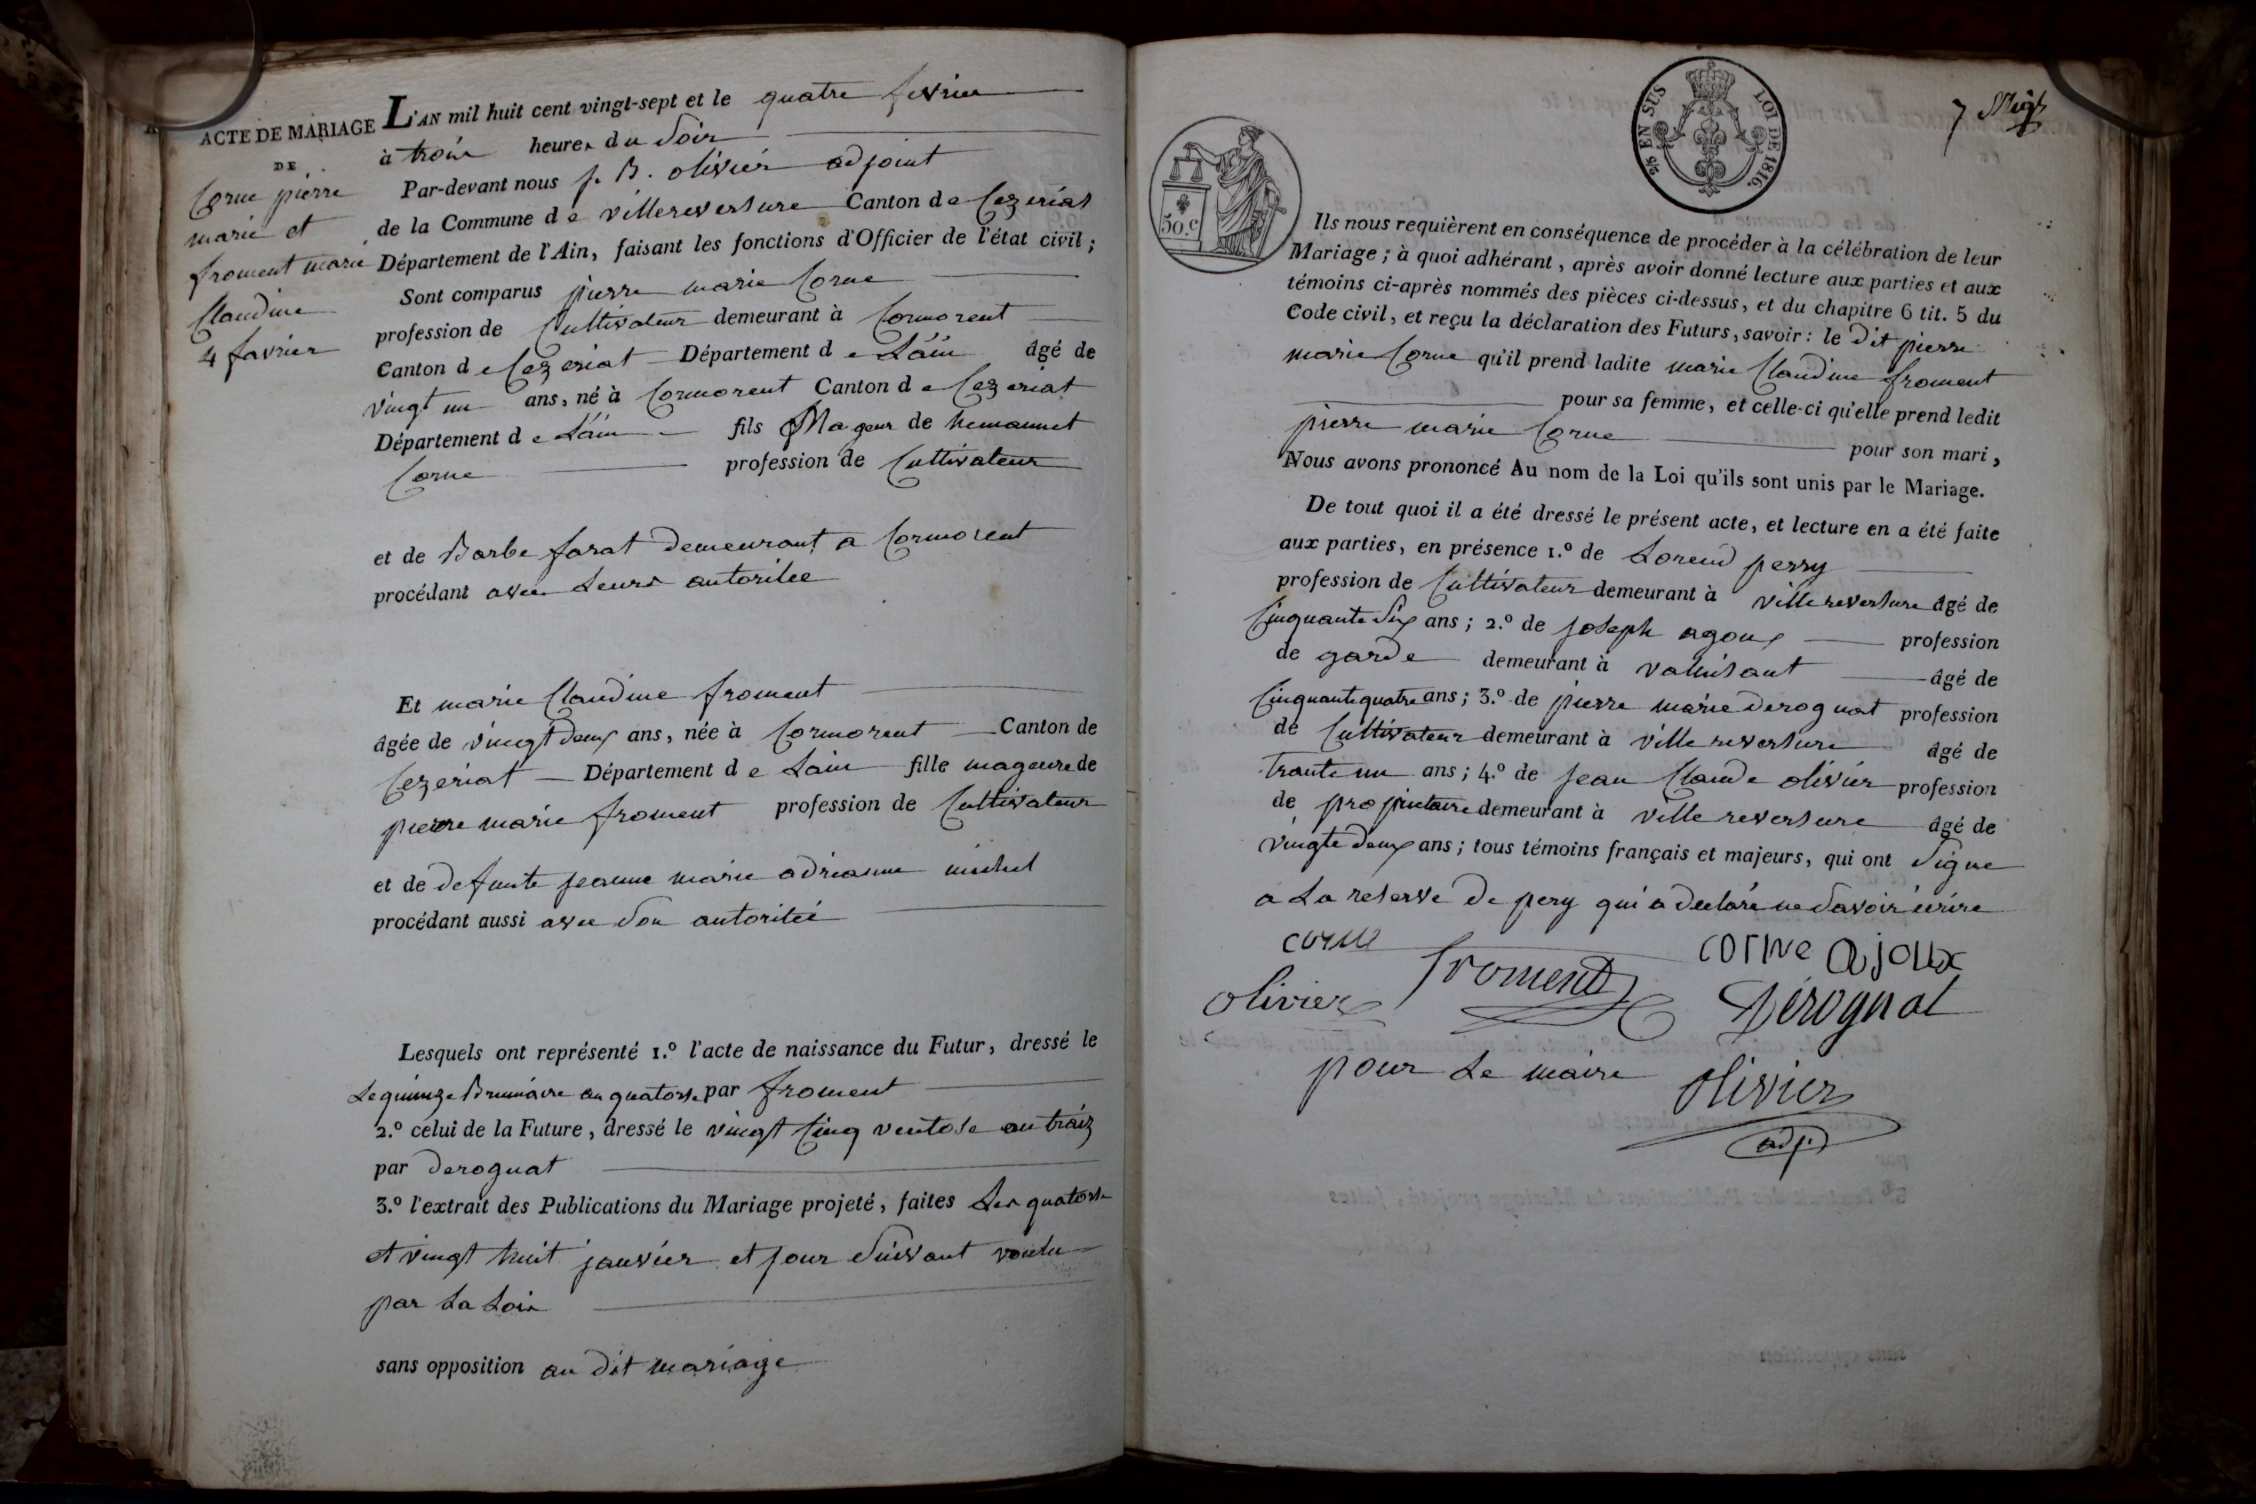 ACTE DE MARIAGE
DE
Corne pierre
marie et
froment marie
Claudine
4 favrier
L'AN mil huit cent vingt-sept et le quatre fevrier
à trois heures du soir
Par-devant nous j. B. olivier adjoint
de la Commune de villereversure Canton de Cezeriat
Département de l'Ain, faisant les fonctions d'Officier de l'état civil;
Sont comparus pierre marie Corne
profession de Cultivateur demeurant à Cormorent
Canton de Cezeriat Département de Lain âgé de
vingt un ans, né à Cormorent Canton de Cezeriat
Département de Lain fils Mageur de
Corne profession de Cultivateur
et de Barbe farat demeurant a Cormorent
procédant avec Leurs autoritee
Et marie Claudine froment
âgée de vingt deux ans, née à Cormorent Canton de
Cezeriat Département de Lain fille mageure de
pierre marie froment profession de Cultivateur
et de defunte jeanne marie adrianne michel
procédant aussi avec son autoriteé
Lesquels ont représenté 1.º l'acte de naissance du Futur, dressé le
Le quinze Brumaire an quatorse par froment
2.º celui de la Future, dressé le vingt Cinq ventose an traiz
par deroguat
3.º l'extrait des Publications du Mariage projeté, faites Les quatorse
et vingt huit janvier et jour suivant voulu
par La Loix
sans opposition au dit mariage
2/5 EN SUS LOI DE 1816.
50.c
7
Ils nous requièrent en conséquence de procéder à la célébration de leur
Mariage; à quoi adhérant, après avoir donné lecture aux parties et aux
témoins ci-après nommés des pièces ci-dessus, et du chapitre 6 tit. 5 du
Code civil, et reçu la déclaration des Futurs, savoir: le dit pierre
marie Corne qu'il prend ladite marie Claudine froment
pour sa femme, et celle-ci qu'elle prend ledit
pierre marie Corne pour son mari,
Nous avons prononcé Au nom de la Loi qu'ils sont unis par le Mariage.
De tout quoi il a été dressé le présent acte, et lecture en a été faite
aux parties, en présence 1.º de Lorend perry
profession de Cultivateur demeurant à villereversure âgé de
Cinquante Six ans; 2.º de joseph agoux profession
de garde demeurant à âgé de
Cinquante quatre ans; 3.º de pierre marie deroguat profession
de Cultivateur demeurant à ville reversure âgé de
trante un ans; 4.º de jean Claude olivier profession
de proprietaire demeurant à ville reversure âgé de
vingte deux ans; tous témoins français et majeurs, qui ont signe
a La reserve de pery qui a declaré ne savoir écrire
corne corne ajoux
olivier froment Dérognat
pour Le maire olivier
adj.